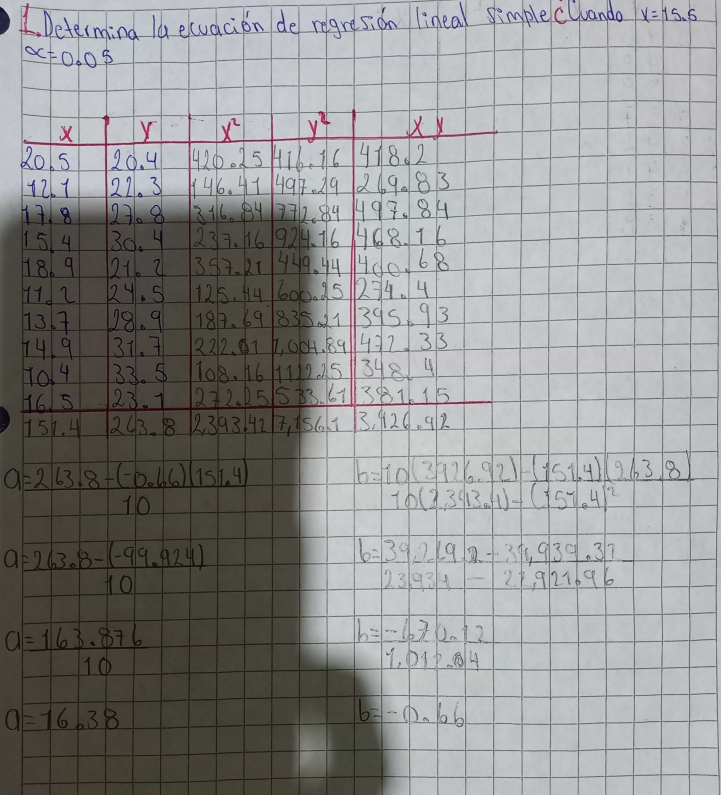 1. Determina la ecuación de regresión lineal simple Cuando x=15.5
α=0.05
x y x² y² xy
20.5 20.4 420.25 416.16 418.2
12.1 22.3 146.41 497.29 269.83
17.8 27.8 316.84 772.84 497.84
15.4 30.4 237.16 924.16 468.16
18.9 21.2 357.21 449.44 400.68
11.2 24.5 125.44 600.25 274.4
13.7 28.9 187.69 835.21 395.93
14.9 31.7 222.01 1,004.89 472.33
10.4 33.5 108.16 1122.25 348.4
16.5 23.1 272.25 533.61 381.15
151.4 263.8 2,393.42 7,156.1 3,926.92
a=263.8-(-0.66)(151.4) b=10(3926.92)-(151.4)(263.8)
10 10(2,393.4)-(151.4)²
a=263.8-(-99.924) b=39,269.2-39,939.32
10 23,934 - 22,921.96
a=163.876 b=-670.12
10 1,012.04
a=16.38 b=-0.66